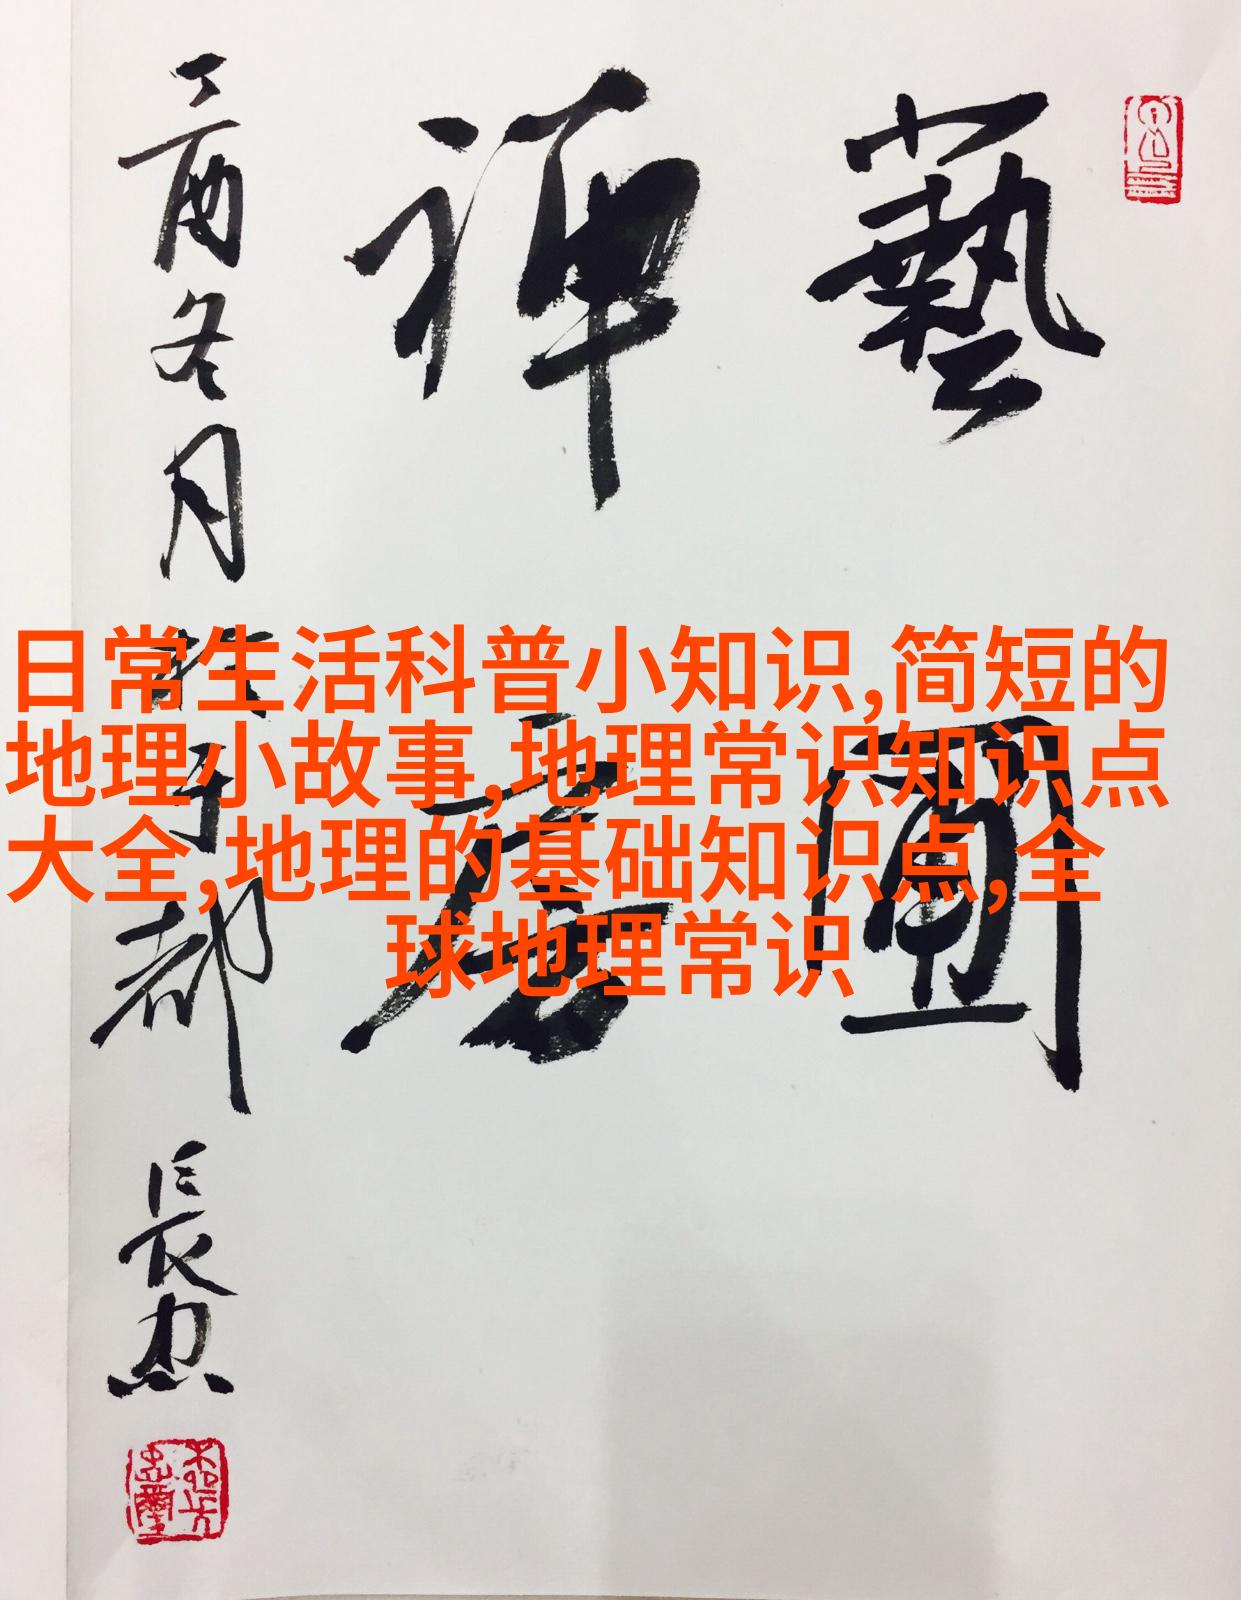 日常生活科普小知识,简短的
地理小故事,地理常识知识点
大全,地理的基础知识点,全
球地理常识
藝圃
禪
酉冬月
于都
長